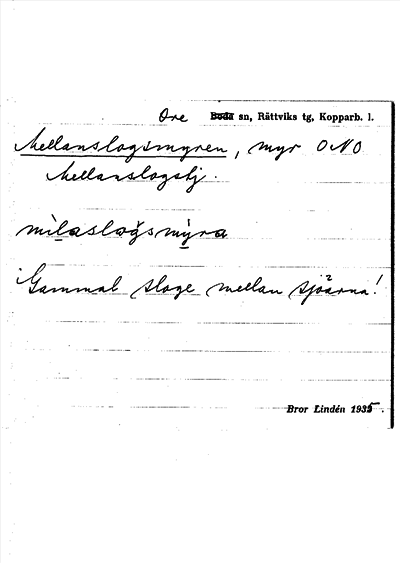 Ore Boda sn, Rättviks tg, Kopparb. l.
Mellanslogsmyren, myr ONO
Mellanslogstj.
mìlaslogsmỳra
Gammal sloge mellan sjöarna!
Bror Lindén 1935.